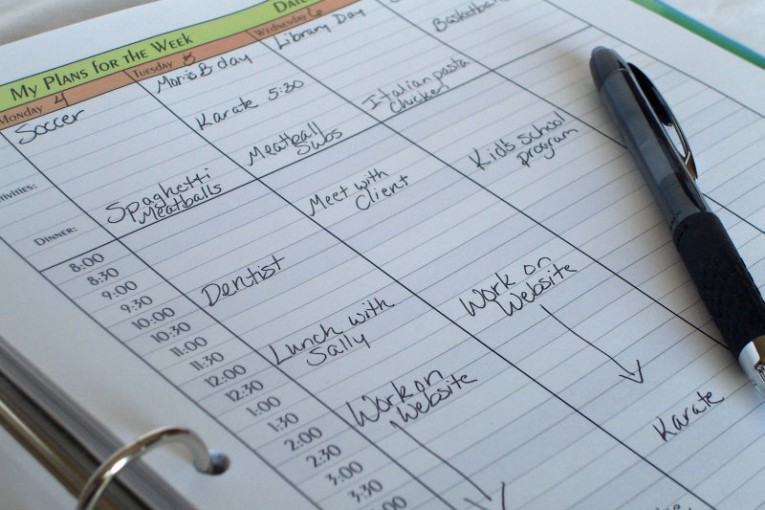 My Plans for the Week
Monday 4
Tuesday 5
Wednesday 6
Soccer
Mom's B day
Library Day
Karate 5:30
Spaghetti
Meatballs
Meatball
Subs
Italian pasta
Chicken
Dinner:
8:00
8:30
9:00
9:30
10:00
10:30
11:00
11:30
12:00
12:30
1:00
1:30
2:00
2:30
3:00
3:30
Dentist
Lunch with
Sally
Work on
Website
Meet with
Client
Work on
Website
Kids school
program
Karate